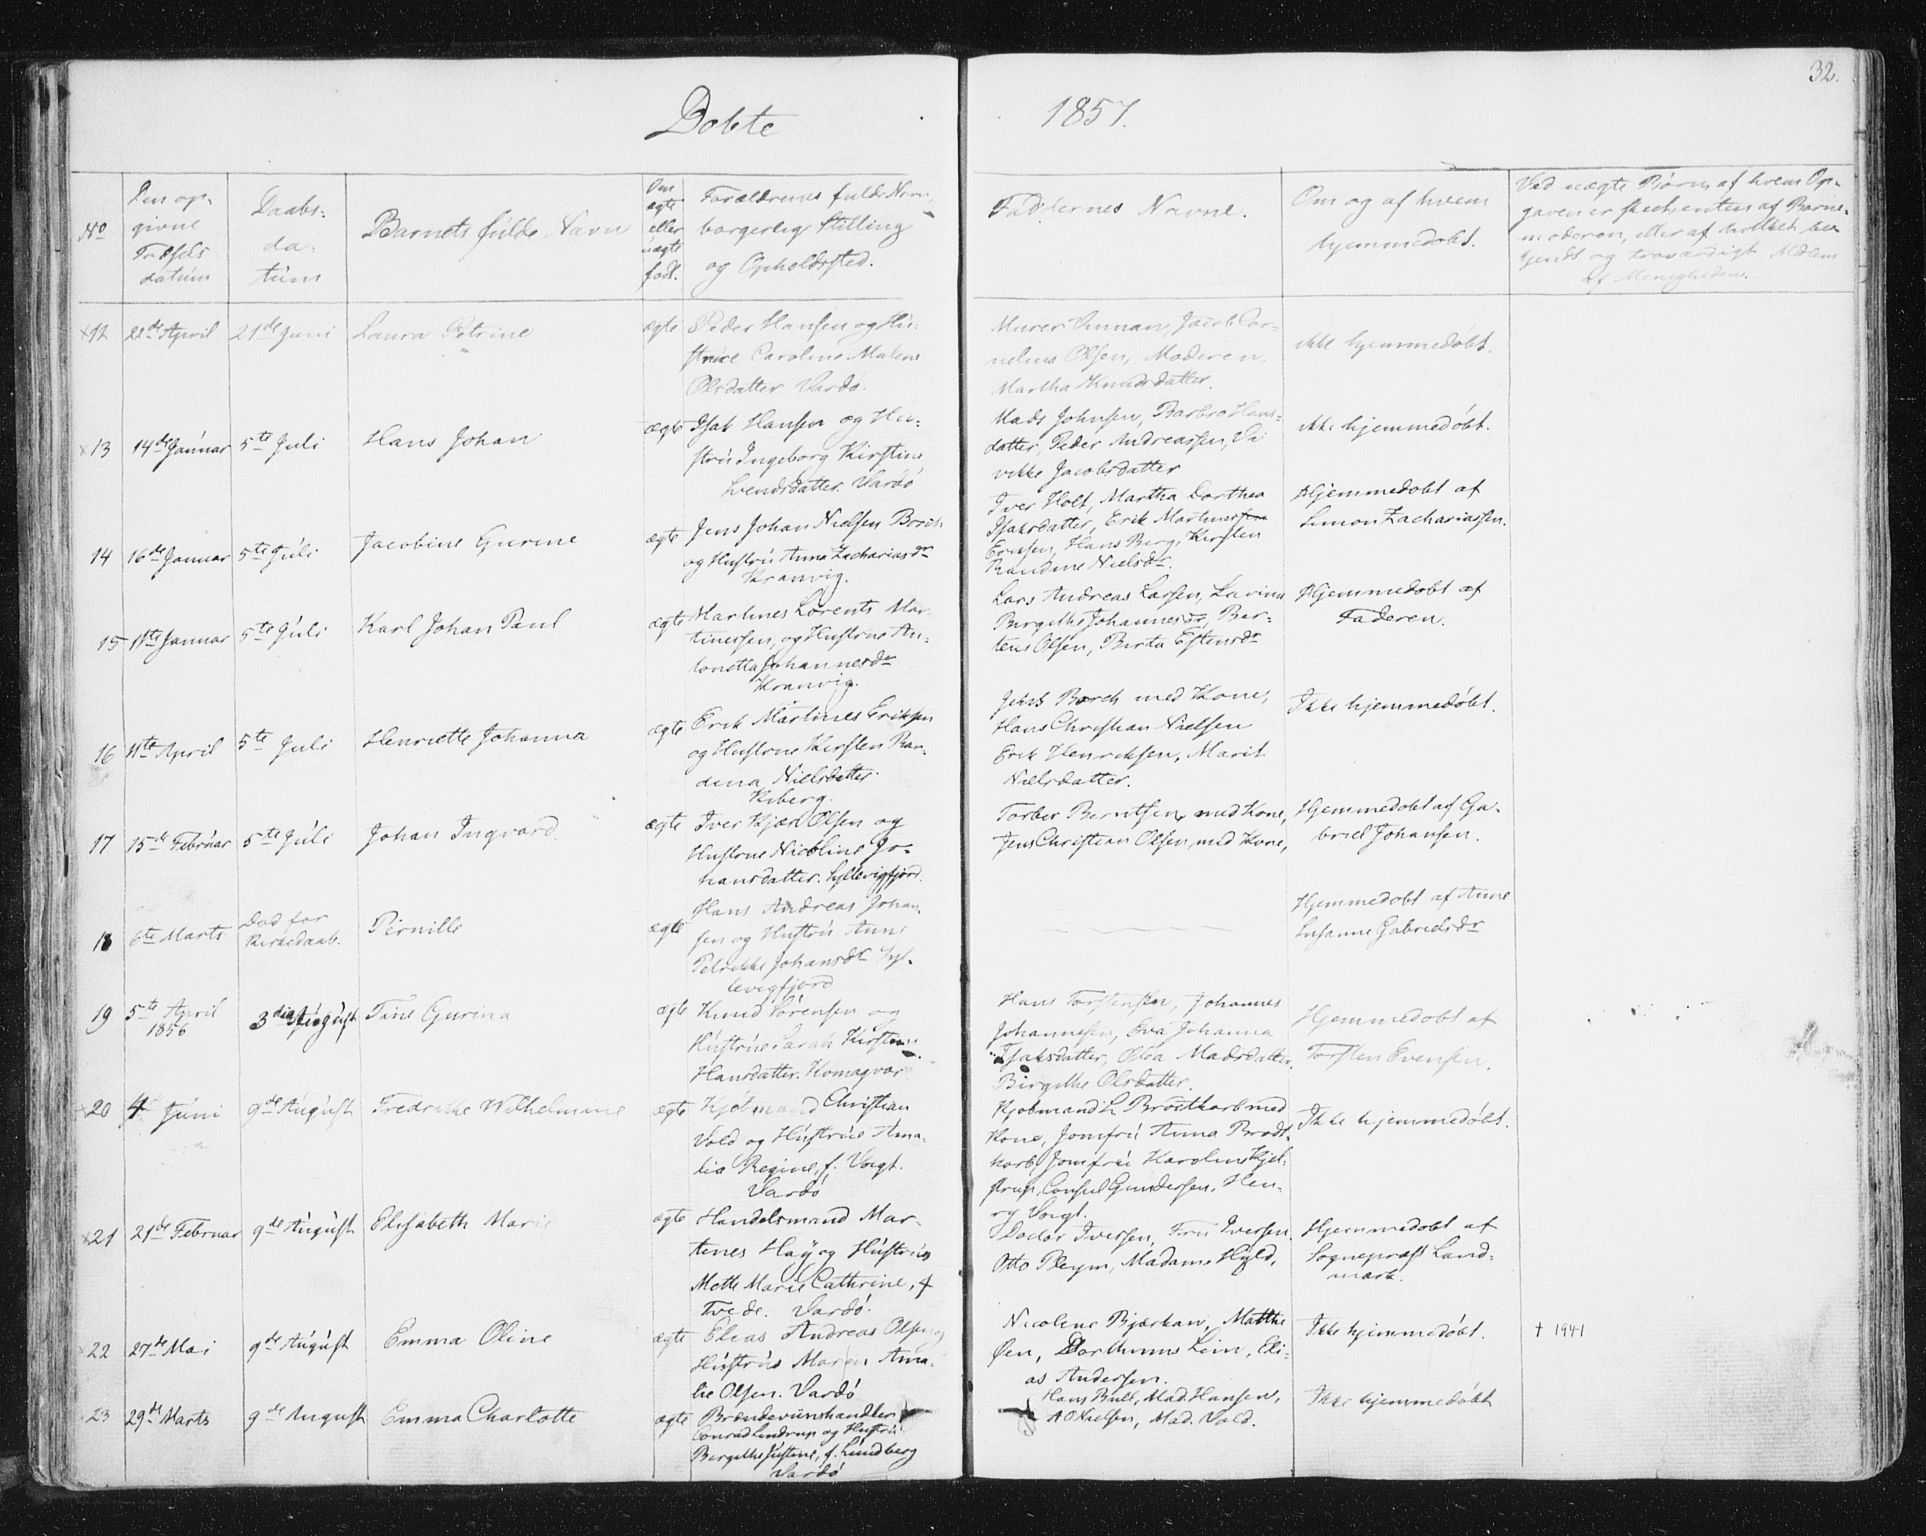 32.
Døbte
1857.
No
Den op-
givne
Fødsels
datum
Daabs-
da-
tum
Barnets fulde Navn
Om
ægte
eller
uægte
født.
Forældrenes fulde Navn,
borgerlig Stilling
og Opholdssted.
Faddernes Navne.
Om og af hvem
hjemmedøbt.
Ved uægte Børn af hvem Op-
gaven er skeet enten af Barne-
moderen, eller af hvilket be-
kjendt og troværdigt Medlem
af Menigheden.
12 22de April 21de Juni Laura Petrine ægte Peder Hansen og Hu-
strue Caroline Malene
Olsdatter Vardø.
Murer Unman, Jacob Cor-
nelius Olsen, Moderen,
Martha Knudsdatter.
ikke hjemmedøbt.
13 14de Januar 5te Juli Hans Johan ægte Isak Hansen og Hu-
stru Ingeborg Kirstine
Svendsdatter Vardø
Mads Johnsen, Barbro Hans-
datter, Peder Andreassen, Vi
vikke Jacobsdatter
ikke hjemmedøbt.
14 16de Januar 5te Juli Jacobine Gurine ægte Jens Johan Nielsen Borch
og Hustru Anna Zachariasdr
Kranvig.
Iver Holt, Martha Dorthea
Isaksdatter, Erik Martines
Eriksen, Hans Berg, Kirsten
Randine Nielsdr.
Hjemmedøbt af
Simon Zachariassen.
15 11te Januar 5te Juli Karl Johan Paul ægte Martines Lorents Mar-
tinessen, og Hustrue An-
tonetta Johannesdr
Kranvig.
Lars Andreas Larsen, Lavina
Bergithe Johannesdr, Ber-
teus Olsen, Berta Estensdr
Hjemmedøbt af
Faderen.
16 11te April 5te Juli Henriette Johanna ægte Erik Martines Eriksen
og Hustrue Kirsten Ran-
dina Nielsdatter.
Kiberg.
Jens Borch med Kone,
Hans Christian Nielsen
Erik Henriksen, Marit
Nielsdatter.
Ikke hjemmedøbt.
17 15de Februar 5te Juli Johan Ingvard ægte Iver Kjær Olsen og
Hustrue Nicoline Jo-
hansdatter. Syltevigfjord.
Torber Berntsen, med Kone,
Jens Christian Olsen, med Kone,
Hjemmedøbt af Ga-
briel Johansen.
18 6te Marts Død før
Kirkedaab. Pernille ægte Hans Andreas Johan-
sen og Hustru Anne
Petrikke Johansdr Syl-
tevigfjord
Hjemmedøbt af Anne
Susanne Gabrielsdr
19 5te April
1856 3die August Tine Gurina ægte Knud Sørensen og
Hustrue Sarah Kirstine
Hansdatter. Komagvær
Hans Torstensen, Johannes
Johannesen, Eva Johanna
Isaksdatter, Olea Madsdatter,
Birgithe Olsdatter.
Hjemmedøbt af
Torsten Evensen.
20 4 Juni 9de August Fredrikke Wilhelmine ægte Kjøbmand Christian
Vold og Hustrue Ama-
lia Regine, f. Voigt.
Vardø
Kjøbmand L Brodtkorb med
Kone, Jomfru Anna Brodt-
korb, Jomfrue Karoline Kjel-
strup, Consul Gundersen, Hen-
ry Voigt.
Ikke hjemmedøbt.
21 21de Februar 9de August Elisabeth Marie ægte Handelsmand Mar-
tenes Høy og Hustrue
Mette Marie Cathrine, f
Tvede. Vardø.
Doctor Iversen, Fru Iversen,
Otto Pleym, Madame Hyld,
Hjemmedøbt af
Sognepræst Land-
mark.
22 27de Mai 9de August Emma Oline ægte Elias Andreas Olsen og
Hustrue Maren Ama-
lie Olsen. Vardø
Nicoline Bjærkan, Matthe
Øen, Dorthinus Lein, Eli-
as Andersen.
Ikke hjemmedøbt.
† 1941
23 29de Marts 9de August Emma Charlotte ægte Brændeviinshandler
Conrad Lindrup og Hustru
Bergithe Justine, f. Lundberg
Vardø
Hans Bull, Mad. Hansen,
A O Nielsen, Mad. Vold.
Ikke hjemmedøbt